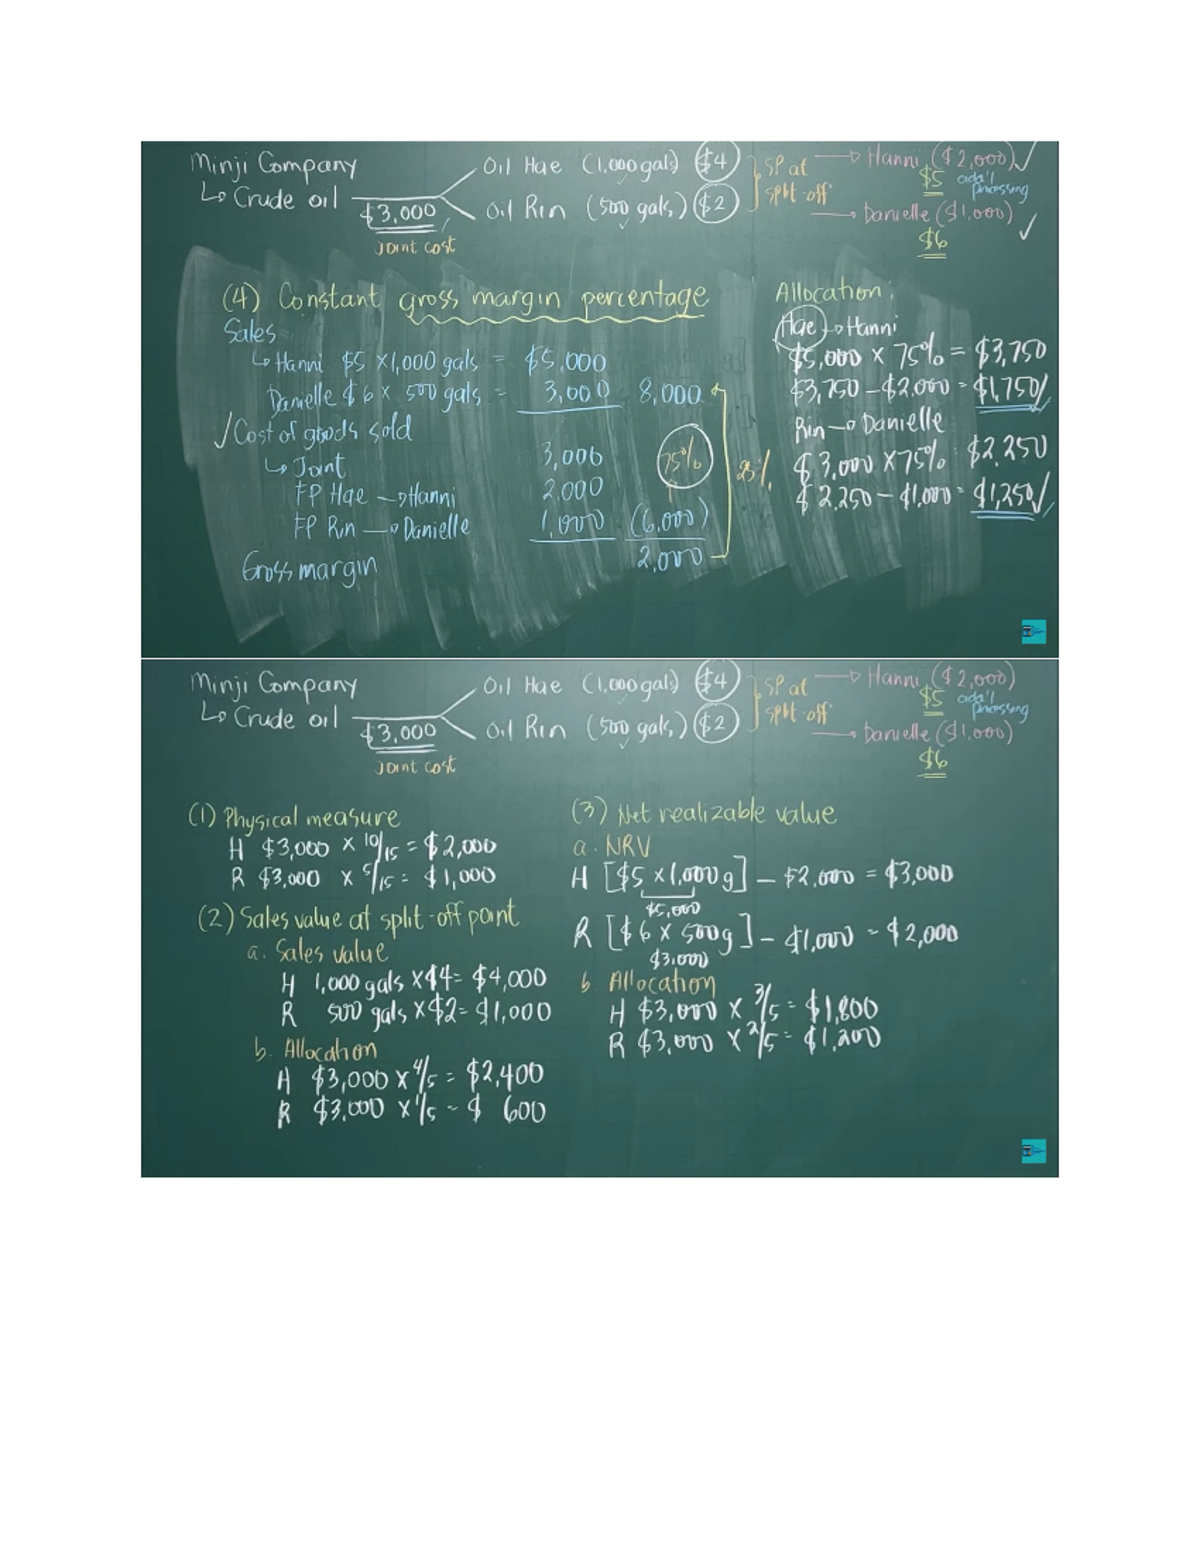 Minji Company
↳ Crude oil
$3,000
Joint cost
Oil Hae (1,000 gals) $4
Oil Rin (500 gals) $2
SP at
split-off
→ Hanni ($2,000) ✓
$5 add'l
processing
→ Danielle ($1,000) ✓
$6
(4) Constant gross margin percentage
Sales
↳ Hanni $5 × 1,000 gals = $5,000
Danielle $6 × 500 gals = 3,000 8,000
✓ Cost of goods sold
↳ Joint 3,000
FP Hae → Hanni 2,000 75%
FP Rin → Danielle 1,000 (6,000)
Gross margin 2,000
25%
Allocation:
Hae → Hanni
$5,000 × 75% = $3,750
$3,750 – $2,000 = $1,750/
Rin → Danielle
$3,000 × 75% = $2,250
$2,250 – $1,000 = $1,250/
Minji Company
↳ Crude oil
$3,000
Joint cost
Oil Hae (1,000 gals) $4
Oil Rin (500 gals) $2
SP at
split-off
→ Hanni ($2,000)
$5 add'l
processing
→ Danielle ($1,000)
$6
(1) Physical measure
H $3,000 × 10/15 = $2,000
R $3,000 × 5/15 = $1,000
(2) Sales value at split-off point
a. Sales value
H 1,000 gals × $4 = $4,000
R 500 gals × $2 = $1,000
b. Allocation
H $3,000 × 4/5 = $2,400
R $3,000 × 1/5 = $ 600
(3) Net realizable value
a. NRV
H [$5 × 1,000 g] – $2,000 = $3,000
$5,000
R [$6 × 500 g] – $1,000 = $2,000
$3,000
b. Allocation
H $3,000 × 3/5 = $1,800
R $3,000 × 2/5 = $1,200